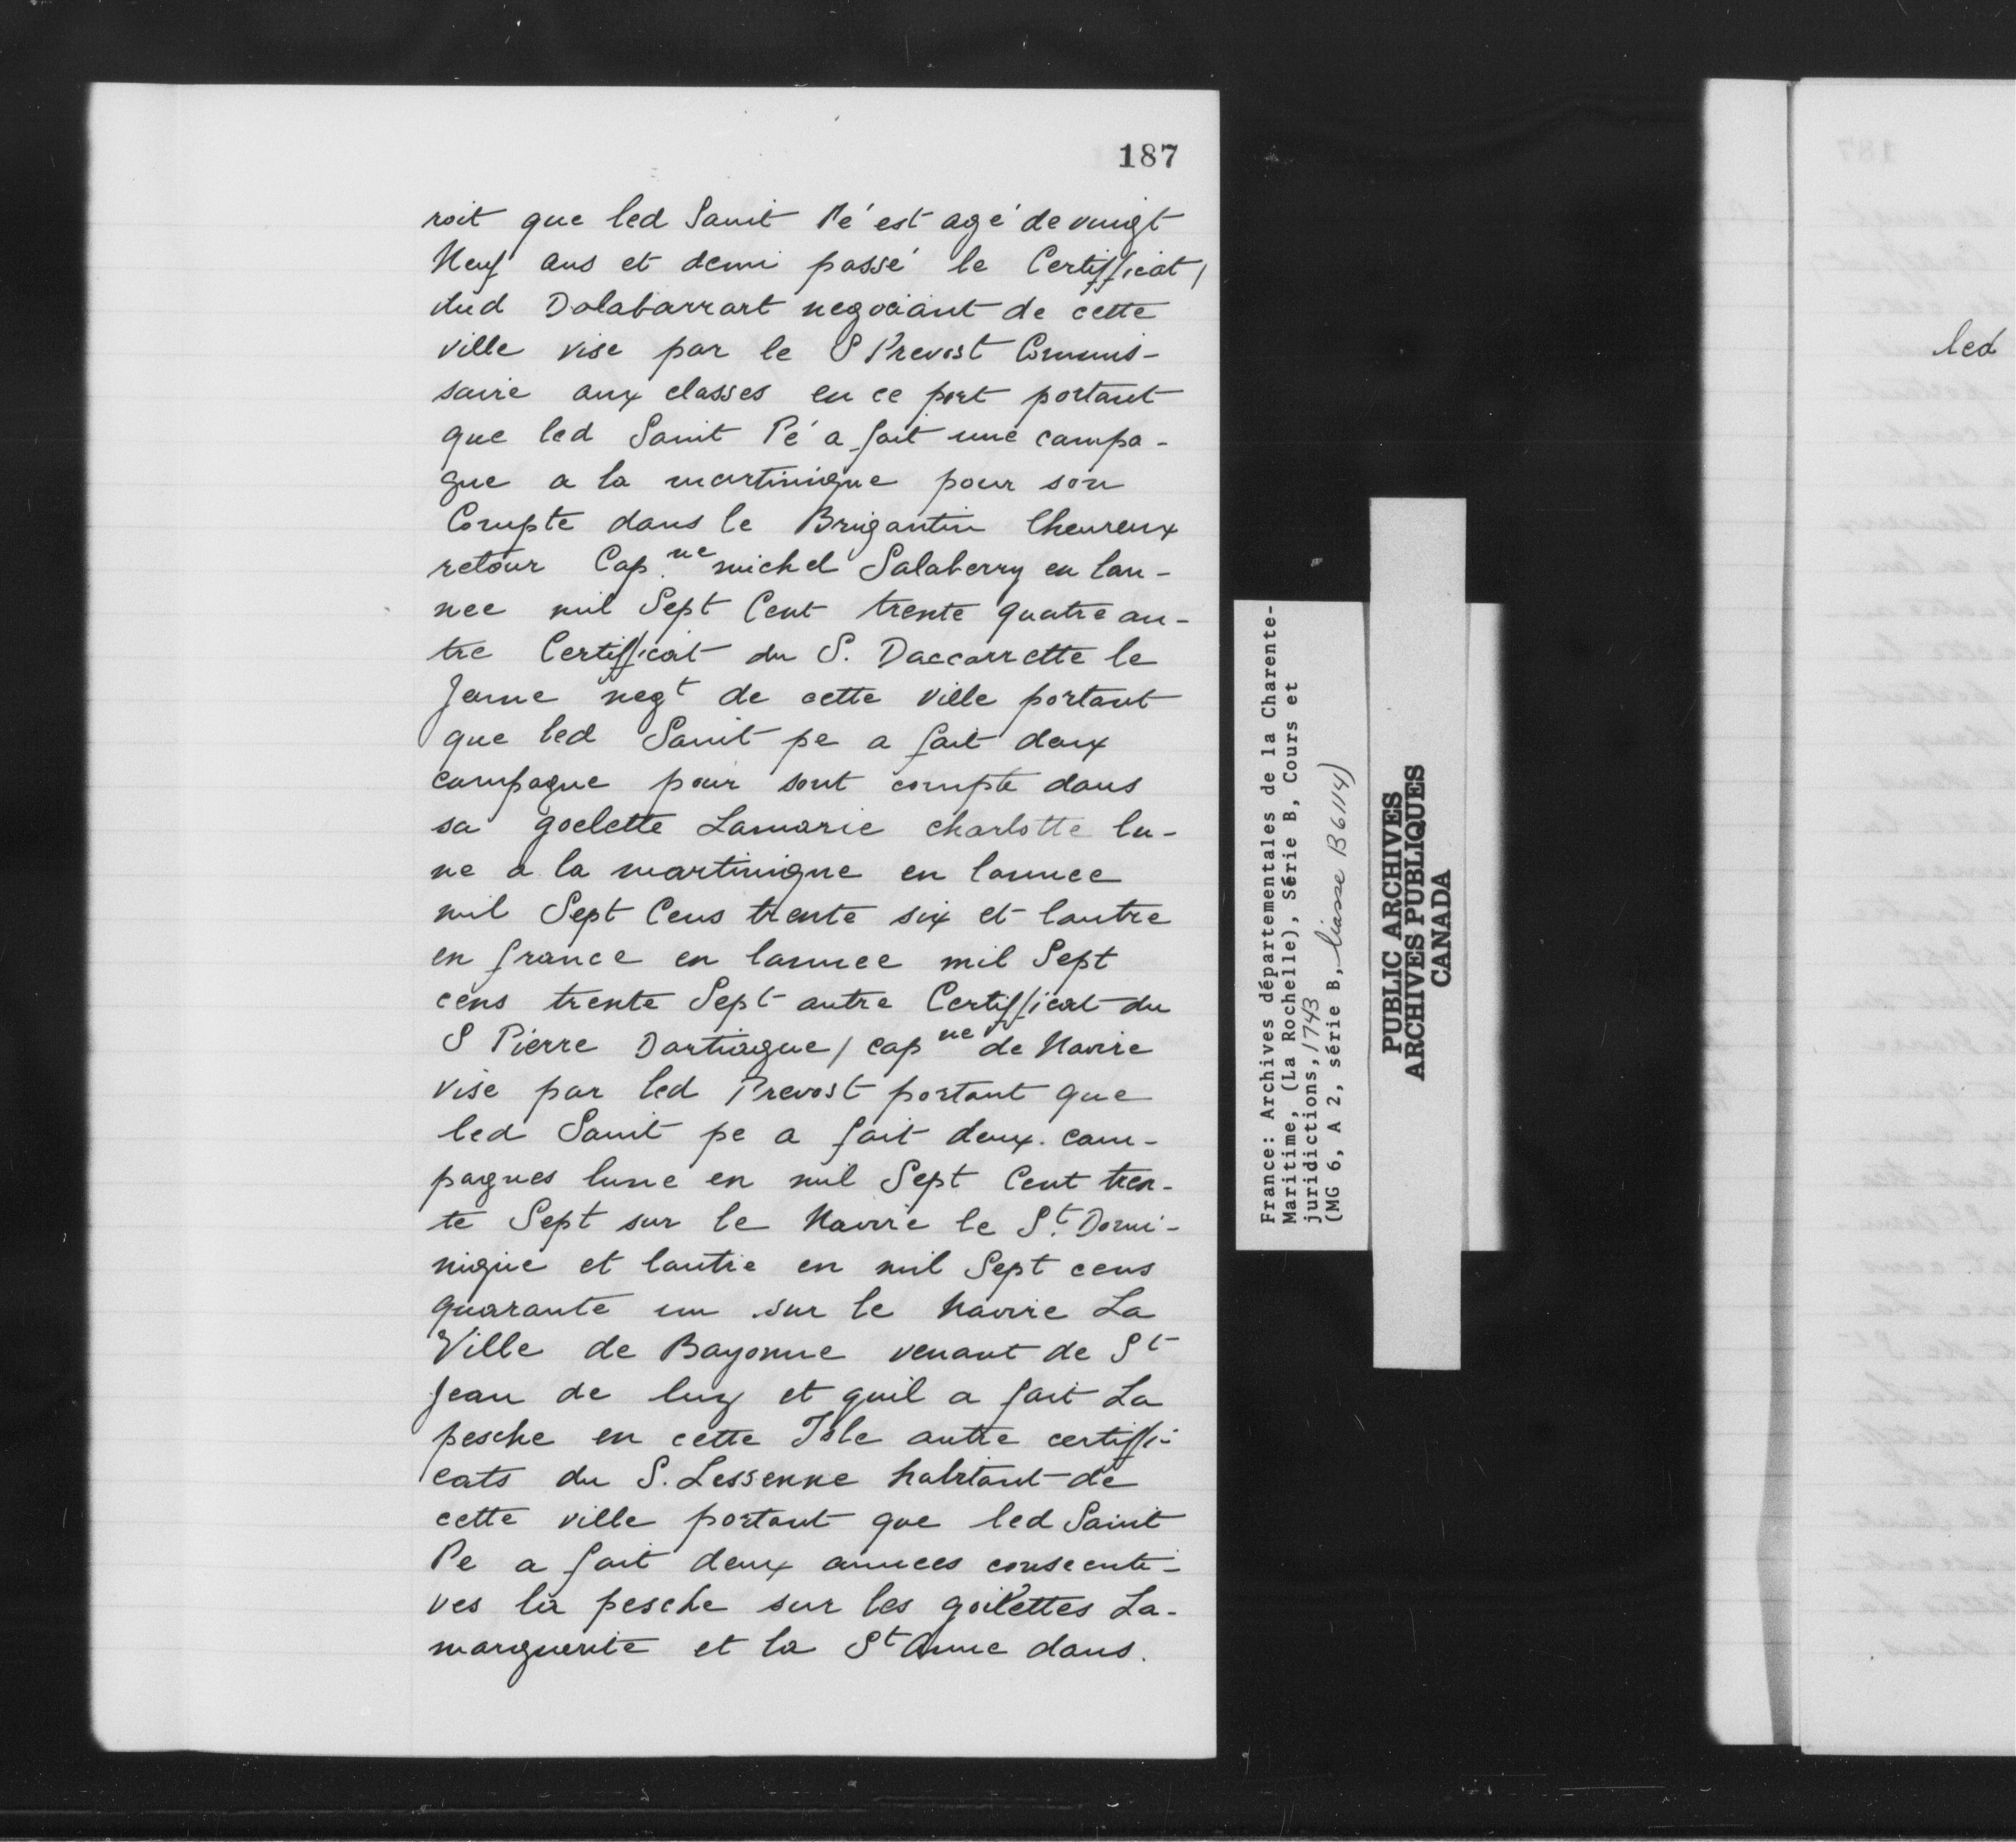 187
roit que led Sanit Pé est agé de vingt
Neuf ans et demi passé le Certifficat,
dud Dolabarrart negociant de cette
ville vise par le S Prevost Commis-
saire aux classes en ce port portant
que led Sanit Pé a fait une campa-
gne a la martinique pour son
Compte dans le Brigantin lheureux
retour Cap.ne michel Salaberry en lan-
nee mil Sept Cent trente quatre au-
tre Certifficat du S. Daccarrette le
Jeune negt de cette ville portant
que led Sanit pe a fait deux
campagne pour sont compte dans
sa goelette Lamarie charlotte lu-
ne a la martinique en lannee
mil Sept Cens trente six et lautre
en france en lannee mil Sept
cens trente Sept autre Certifficat du
S Pierre Dartiague, cap ne de Navire
vise par led Prevost portant que
led Sanit pe a fait deux. cam-
pagnes lune en mil Sept Cent tren-
te Sept sur le Navire le St. Domi-
nique et lautre en mil Sept cens
quarante un sur le Navire La
Ville de Bayonne venant de St
Jean de luz et quil a fait La
pesche en cette Isle autre certiffi-
cats du S. Lessenne habitant de
cette ville portant que led Saint
Pe a fait deux annees consecuti-
ves la pesche sur les goilettes La-
marguerite et la St Anne dans.
France: Archives départementales de la Charente-
Maritime, (La Rochelle), Série B, Cours et
juridictions, 1743
(MG 6, A 2, série B, liasse B6114)
PUBLIC ARCHIVES
ARCHIVES PUBLIQUES
CANADA
led